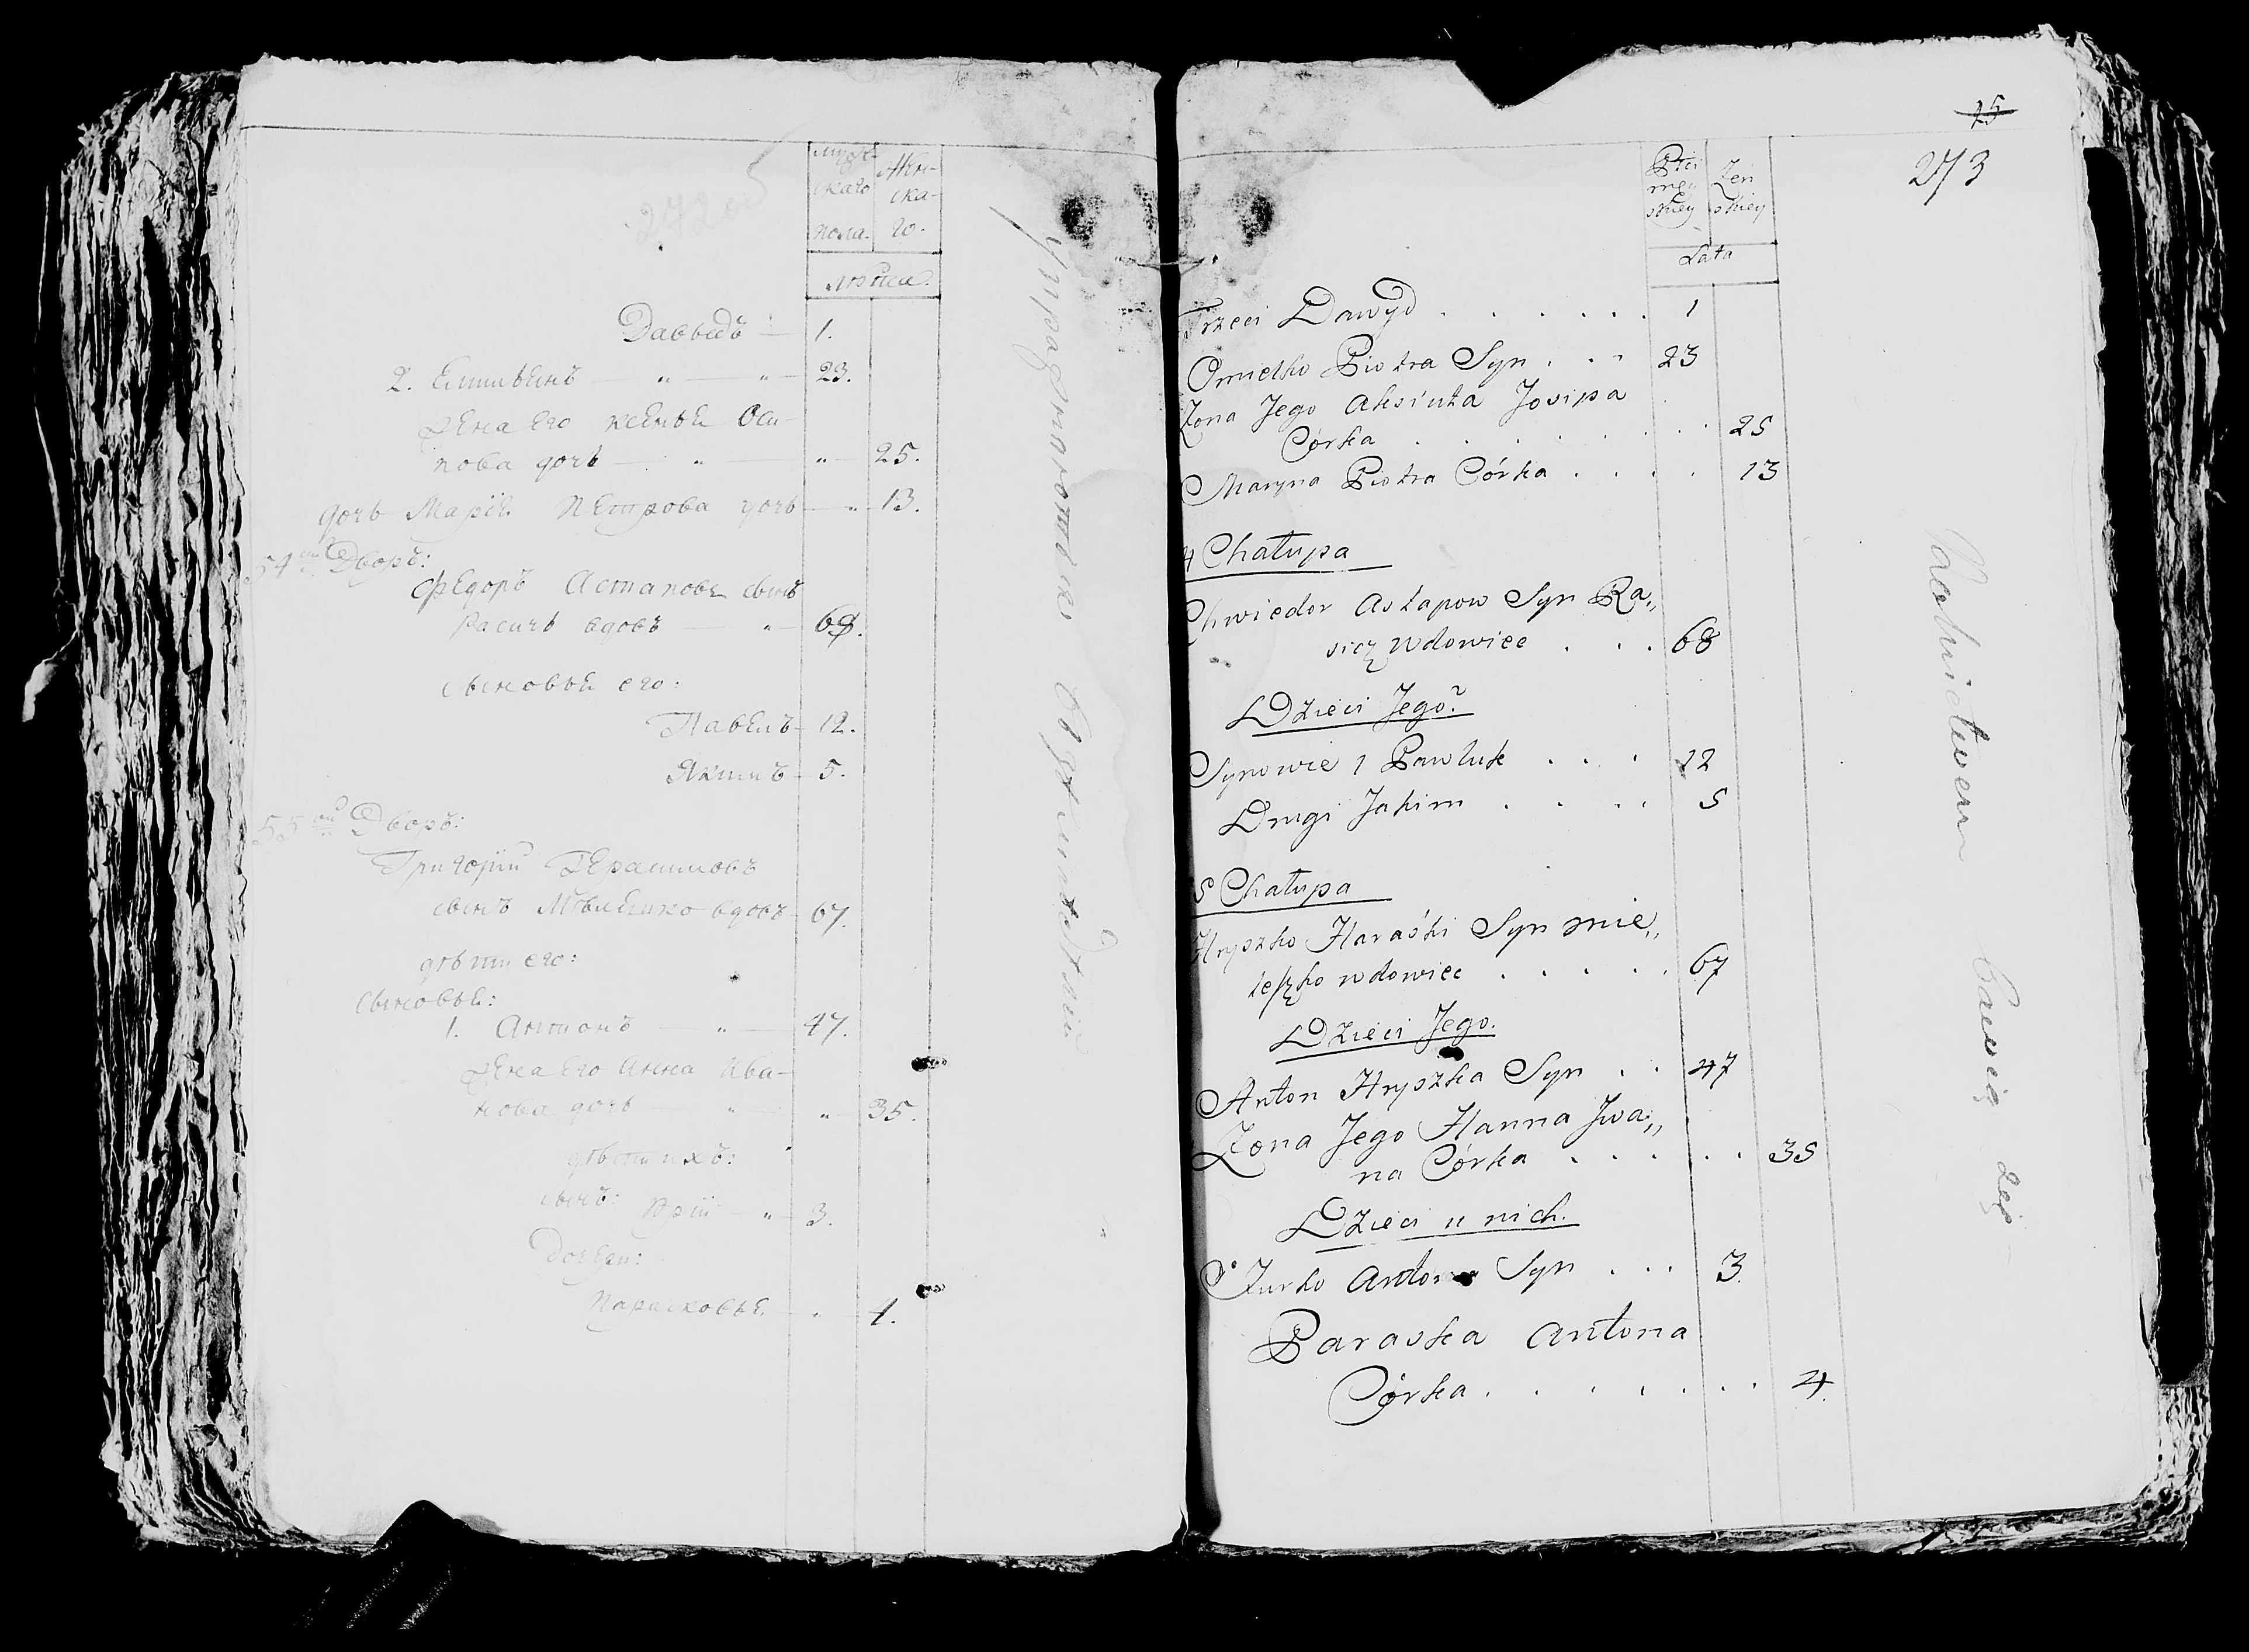 272 об
мужс-
каго
пола.
женс-
ка-
го.
лѣта.
Давыдъ — 1.
2. Емильянъ — " — " — 23.
жена его Ксенья Оси-
пова дочь — " — " — 25.
дочь Марія Петрова дочь — " — 13.
54ый Дворъ:
Федоръ Астаповъ сынъ
Расичъ вдовъ — " — 68.
сыновья его:
Павелъ — 12.
Якимъ — 5.
55ый Дворъ:
Григорій Герасимовъ
сынъ вдовъ — 67.
дѣти его:
сыновья:
1. Антонъ — " — 47.
жена его Анна Ива-
нова дочь — " — " — 35.
дѣти ихъ:
сынъ: Юрій — " — 3.
Дочери:
Парасковья — " — 4.
15
273
Płci
męz
skiey
Żeń
skiey
Lata
Trzeci Dawyd . . . . . . 1
Omielko Piotra Syn . . . 23
Zona Jego Aksiuta Josipa
Córka . . . . . . . 25
Maryna Piotra Córka . . . . 13
4 Chałupa
Chwiedor Astapow Syn Ra„
sicz Wdowiec . . . 68
Dzieci Jego
Synowie 1 Pawluk . . . 12
Drugi Jakim . . . . 5
5 Chałupa
Hryszko Haraśki Syn Mie„
leszko wdowiec . . . . . 67
Dzieci Jego.
Anton Hryszka Syn . . 47
Zona Jego Hanna Jwa„
na Córka . . . . . . 35
Dzieci u nich.
Jurko Antona Syn . . . 3
Paraska Antona
Córka . . . . . . . 4.